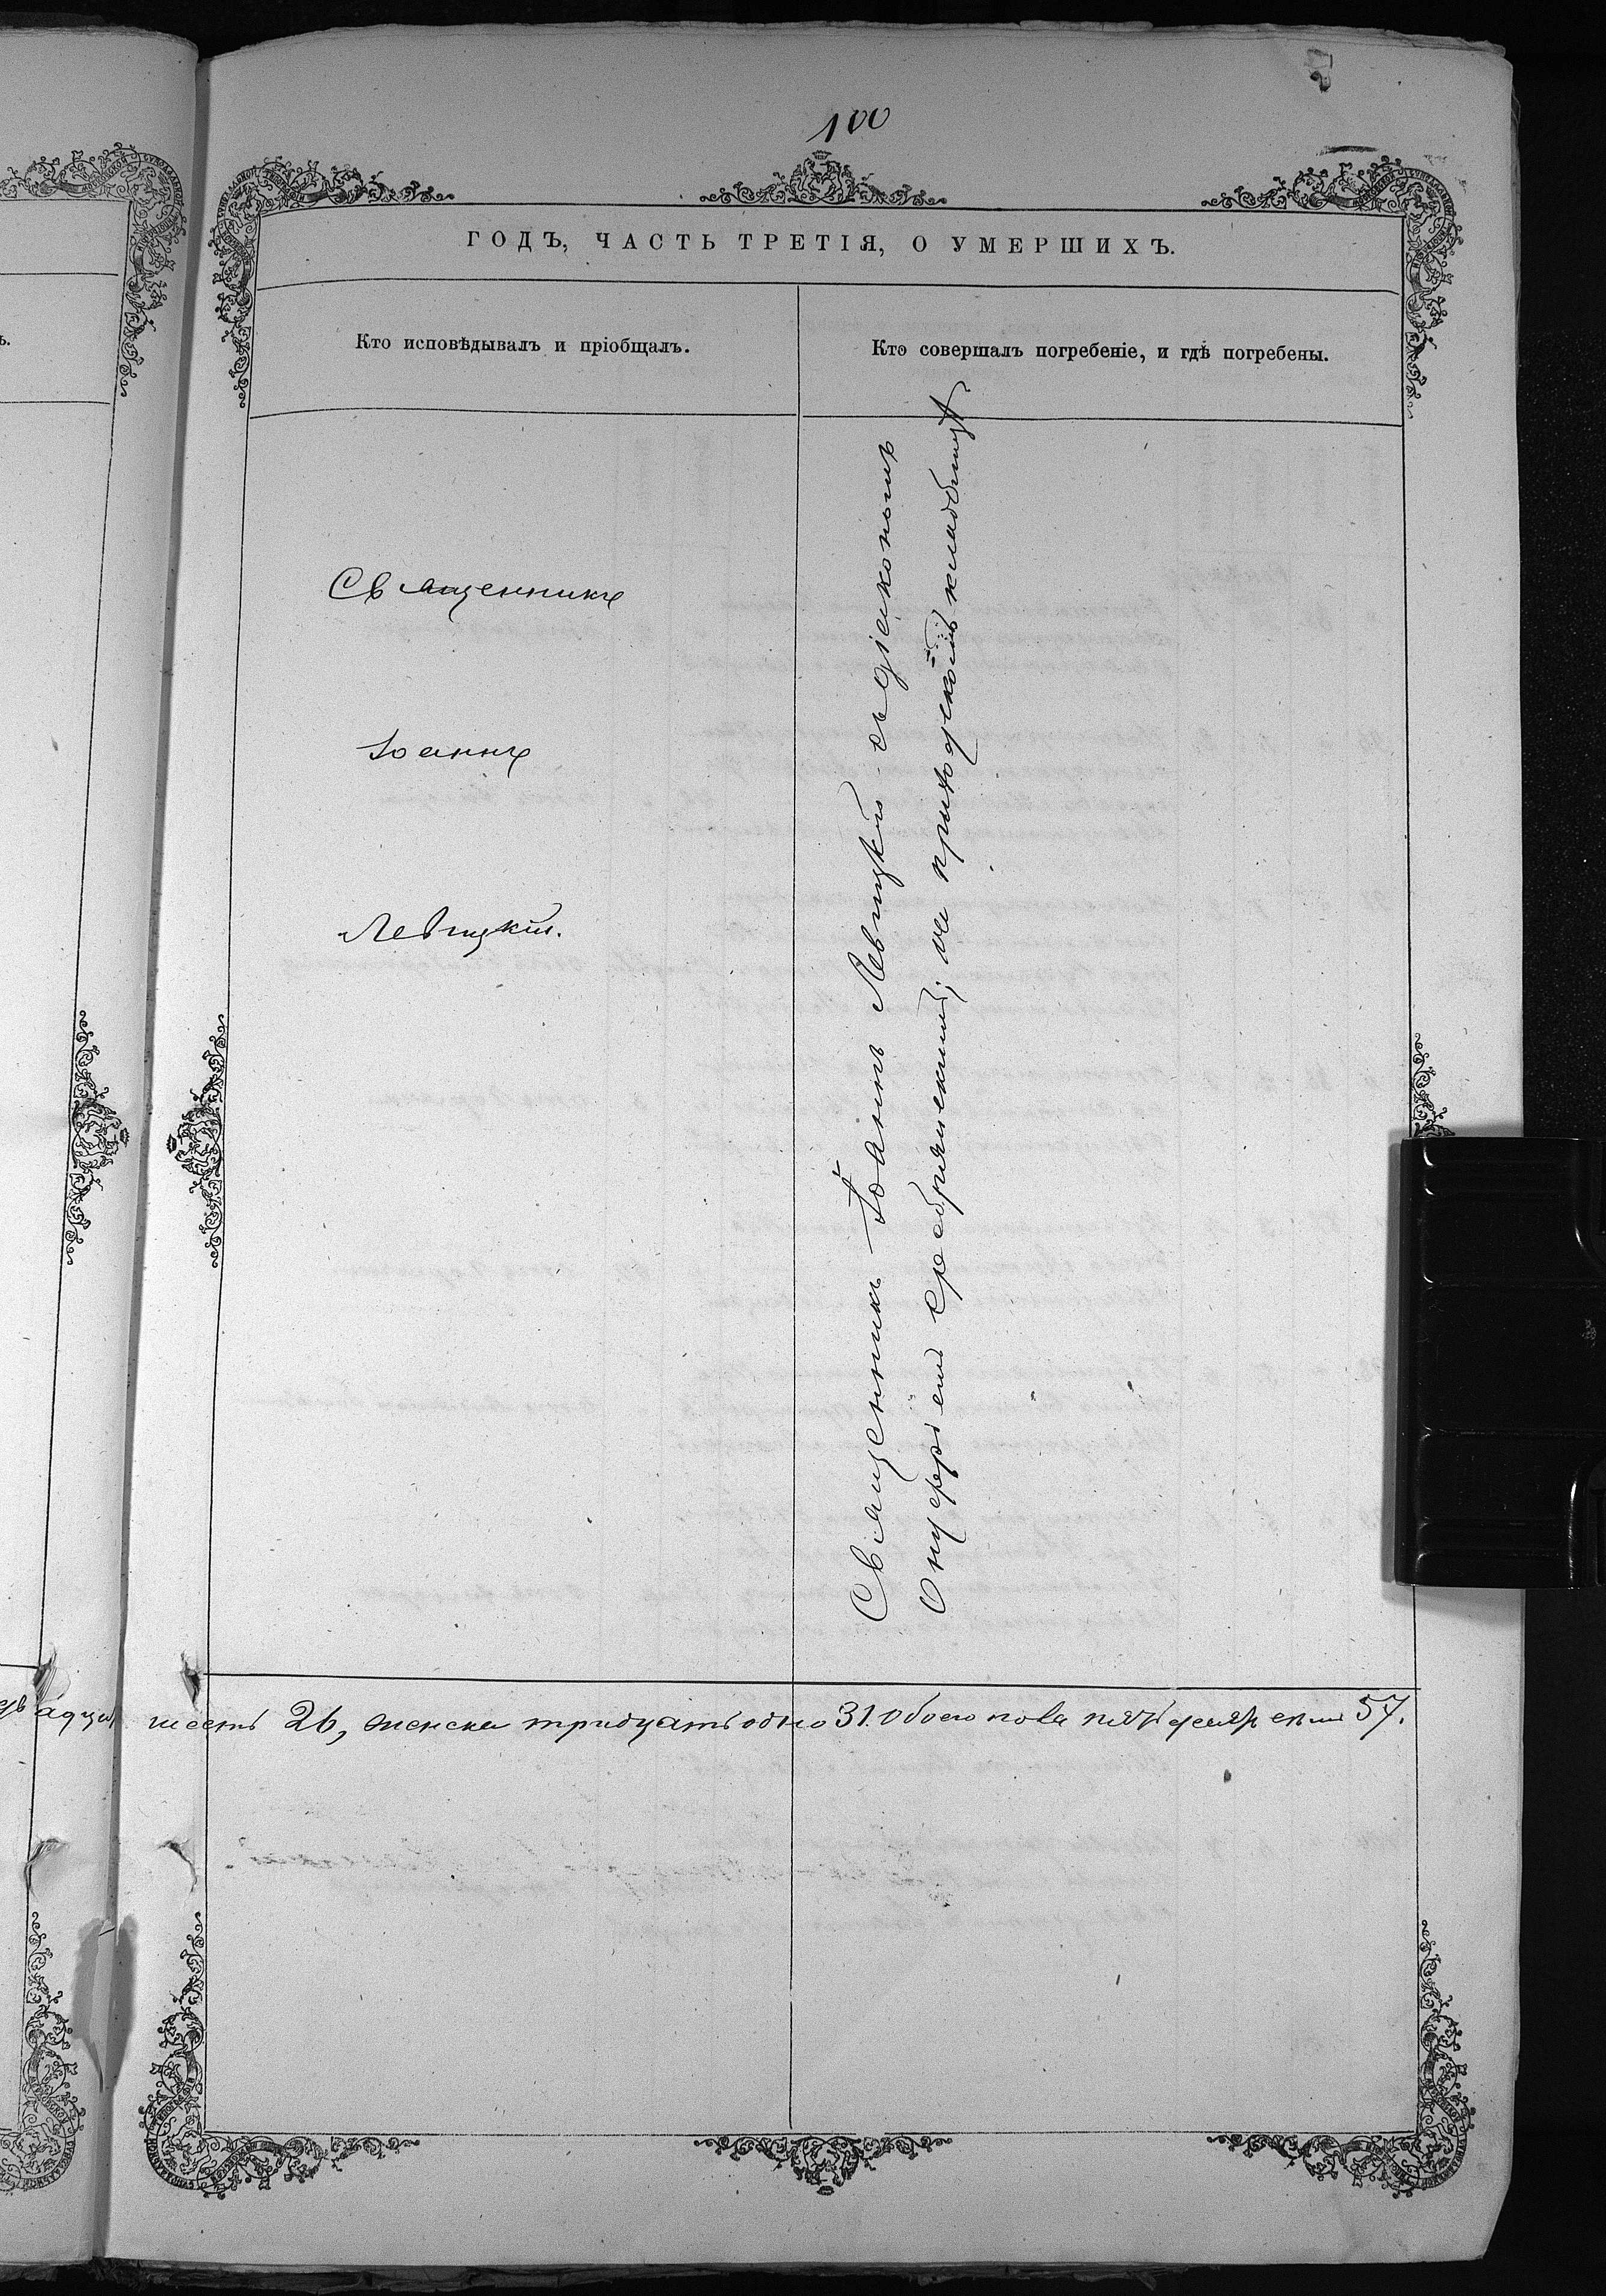 100
ГОДЪ, ЧАСТЬ ТРЕТІЯ, О УМЕРШИХЪ.
Кто исповѣдывалъ и пріобщалъ.
Кто совершалъ погребеніе, и гдѣ погребены.
Священникъ
Іоаннъ
Левицкій.
Священникъ Іоаннъ Левицкій съ діакономъ
Онуфріемъ Сребрянскимъ; на приходскомъ кладбищѣ
шесть 26, женска тридцать одно 31. Обоего пола пятьдесятъ семь 57.